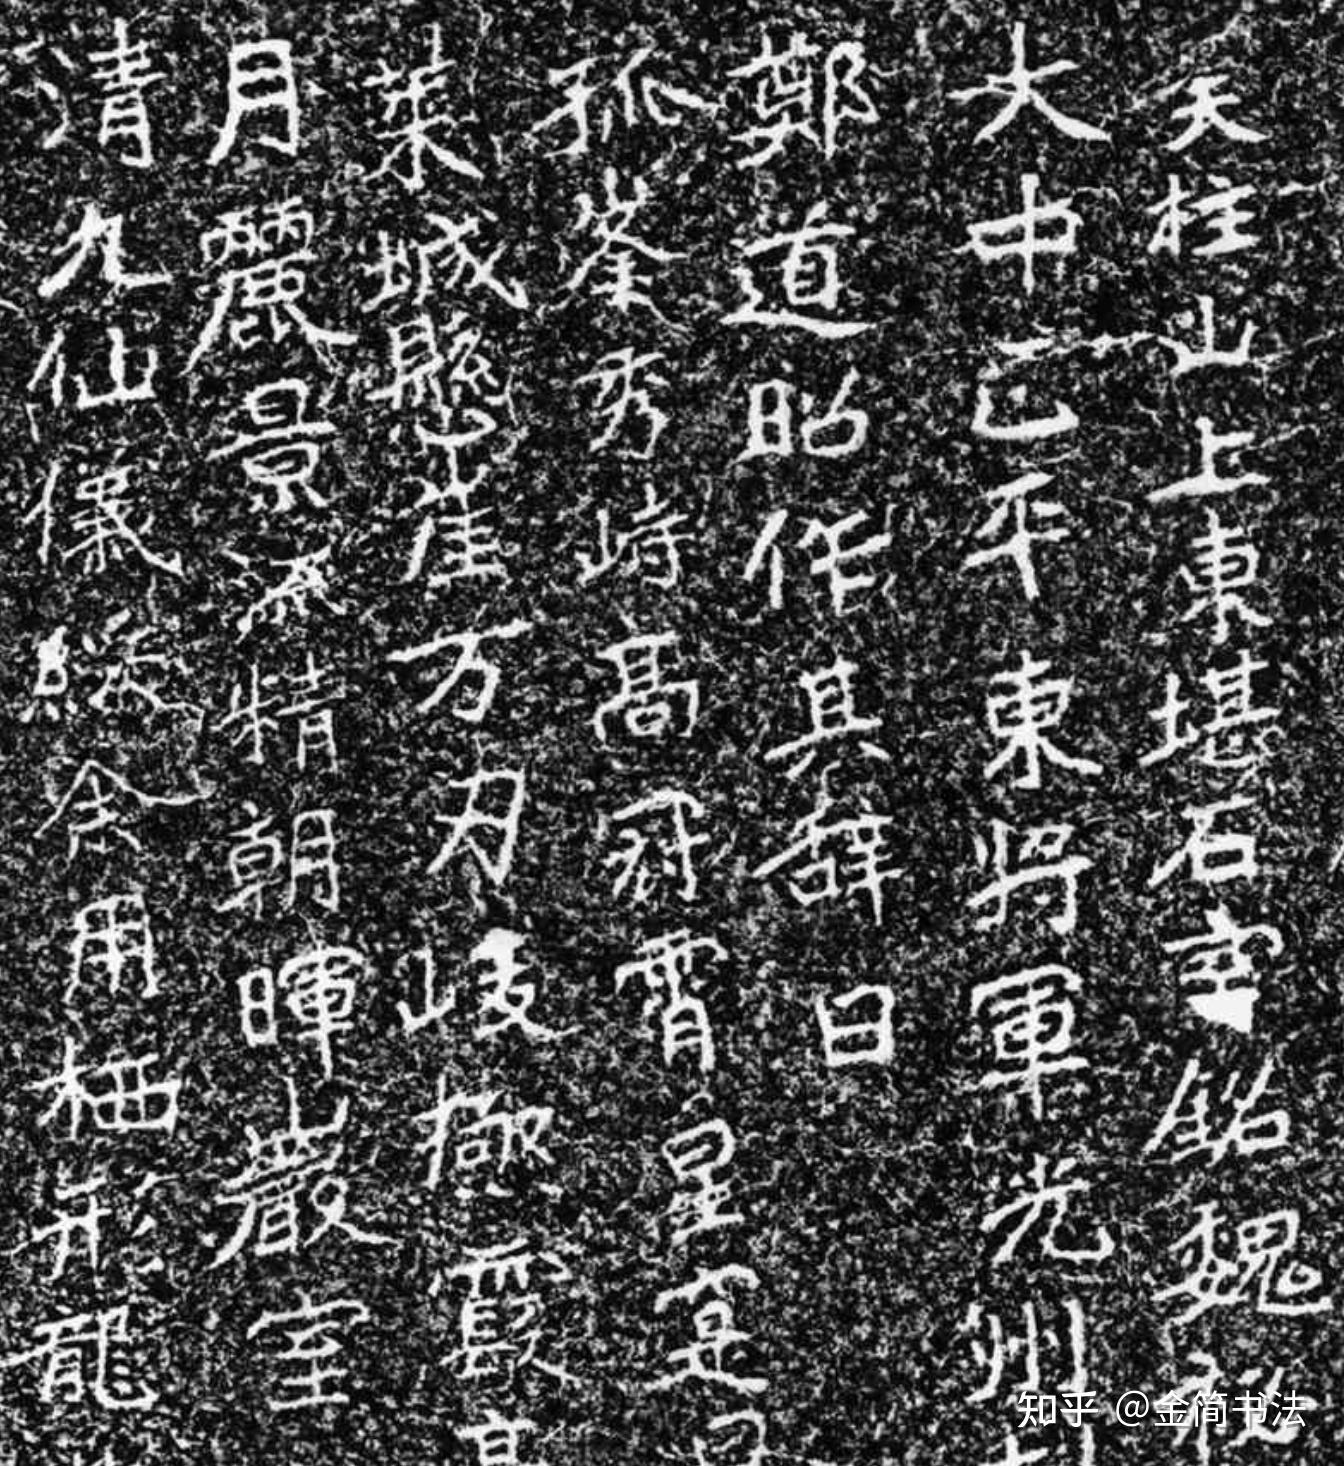 天柱山上東堪石室銘魏祕
大中正平東將軍光州
鄭道昭作其辭曰
孤峯秀峙高冠霄星寔曰
萊城懸崖万刃峻極霞
月麗景流精朝暉巖室
清九仙儀綵余用栖形龍
知乎 @金简书法